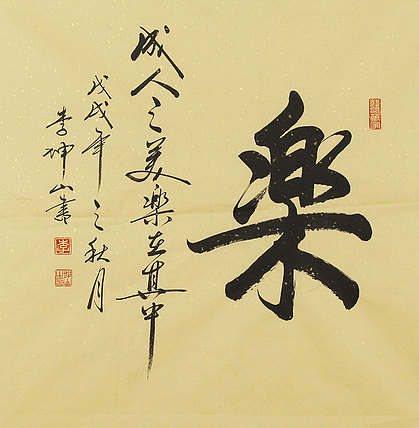 樂
成人之美樂在其中
戊戌年之秋月
李坤山書